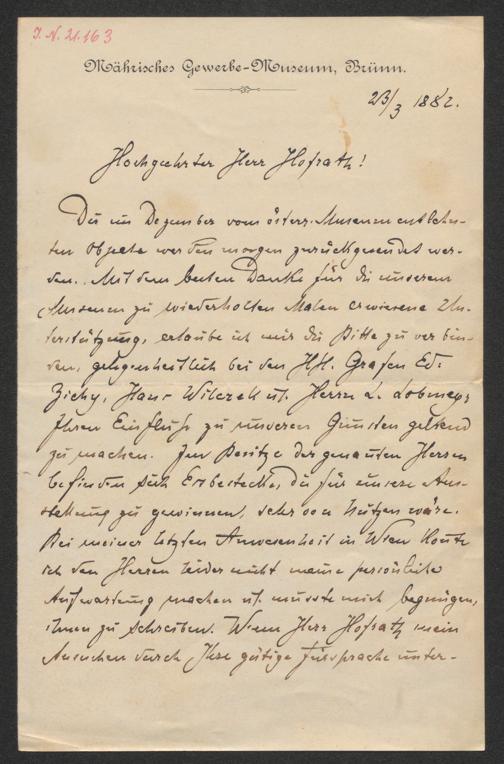 J.N. 21.163
Mährisches Gewerbe-Museum, Brünn.
23/3 1882.
Hochgeehrter Herr Hofrath!
Die im Dezember vom österr. Museum entlehn-
ten Objecte werden morgen zurückgesendet wer-
den. Mit dem besten Danke für die unserem
Museum zu wiederholten Malen erwiesene Un-
terstützung, erlaube ich mir die Bitte zu verbin-
den, gelegentlich bei den HH. Grafen Ed.
Zichy, Hans Wilczek u. Herrn L. Lobmeyr
Ihren Einfluss zu unseren Gunsten geltend
zu machen. Im Besitze der genannten Herren
befinden sich Essbestecke, die für unsere Aus-
stellung zu gewinnen, sehr von Nutzen wäre.
Bei meiner letzten Anwesenheit in Wien konnte
ich den Herren leider nicht meine persönliche
Aufwartung machen u. musste mich begnügen,
ihnen zu schreiben. Wenn Herr Hofrath mein
Ansuchen durch Ihre gütige Fürsprache unter-